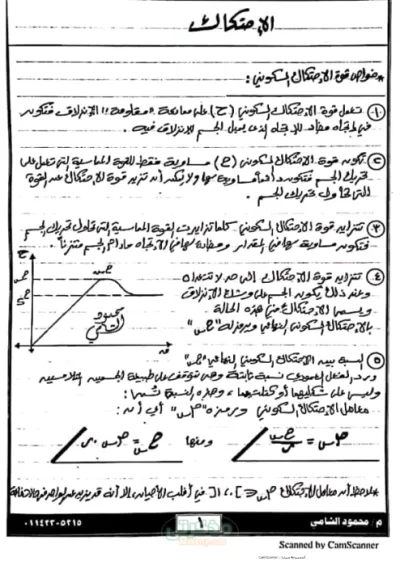 الإحتكاك
* خواص قوة الإحتكاك السكوني :
① تعمل قوة الإحتكاك السكوني (ح) على معاكسة "مقاومة" الإنزلاق فتكون
في إتجاه مضاد للإتجاه الذي يميل الجسم للإنزلاق فيه .
② تكون قوة الإحتكاك السكوني (ح) مساوية فقط للقوة المماسية التي تعمل على
تحريك الجسم فتكون دائماً مساوية لها ولا يمكن أن تزيد قوة الإحتكاك عن القوة
التي تحاول تحريك الجسم .
③ تتزايد قوة الإحتكاك السكوني كلما تزايدت القوة المماسية التي تحاول تحريك الجسم
فتكون مساوية لها في المقدار ومضادة لها في الإتجاه مادام الجسم متزناً .
④ تتزايد قوة الإحتكاك إلى حد لا تتعداه
وعند ذلك يكون الجسم على وشك الإنزلاق
ويسمى الإحتكاك في هذه الحالة
بالإحتكاك السكوني النهائي ويرمز له "حس"
محمود
الشامي
⑤ النسبة بين الإحتكاك السكوني النهائي "حس"
ورد الفعل العمودي نسبة ثابتة وهي تتوقف على طبيعة الجسمين المتلامسين
وليس على شكليهما أو كتلتيهما ، وهذه النسبة تسمى :
معامل الإحتكاك السكوني ويرمز له "مس" أي أن :
ومنها
* لاحظ أن معامل الإحتكاك مس ∈ ]٠، ١[ في أغلب الأحيان إلا أنه قد يزيد عن الواحد في حالات خاصة
م / محمود الشامي
١
٠١١٤٢٣٠٥٣١٥
Scanned by CamScanner